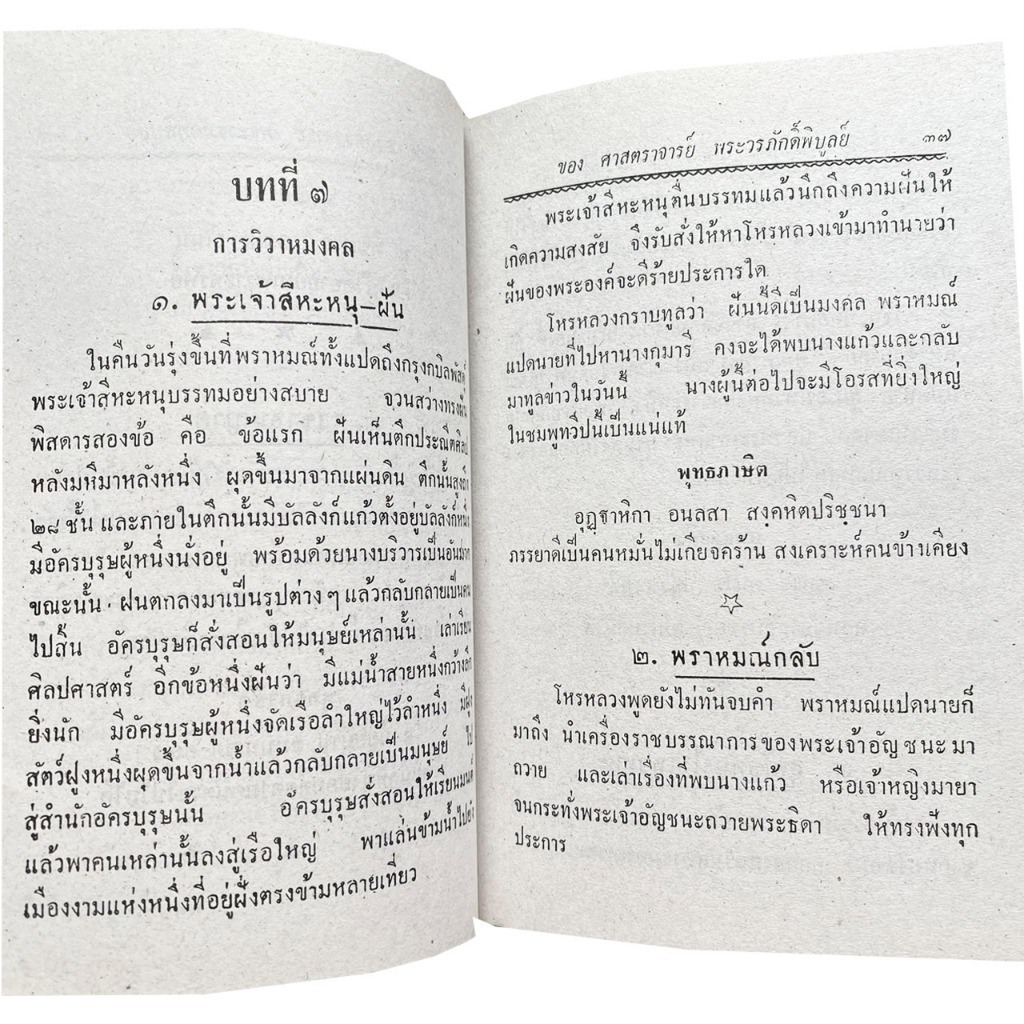 บทที่ ๗
การวิวาหมงคล
๑. พระเจ้าสีหะหนุ—ฝัน
ในคืนวันรุ่งขึ้นที่พราหมณ์ทั้งแปดถึงกรุงกบิลพัสดุ์
พระเจ้าสีหะหนุบรรทมอย่างสบาย จวนสว่างทรงฝัน
พิสดารสองข้อ คือ ข้อแรก ฝันเห็นตึกประณีตศิลป
หลังมหึมาหลังหนึ่ง ผุดขึ้นมาจากแผ่นดิน ตึกนั้นสูงถึง
๒๘ ชั้น และภายในตึกนั้นมีบัลลังก์แก้วตั้งอยู่บัลลังก์หนึ่ง
มีอัครบุรุษผู้หนึ่งนั่งอยู่ พร้อมด้วยนางบริวารเป็นอันมาก
ขณะนั้น ฝนตกลงมาเป็นรูปต่าง ๆ แล้วกลับกลายเป็นคน
ไปสิ้น อัครบุรุษก็สั่งสอนให้มนุษย์เหล่านั้น เล่าเรียน
ศิลปศาสตร์ อีกข้อหนึ่งฝันว่า มีแม่น้ำสายหนึ่งกว้างลึก
ยิ่งนัก มีอัครบุรุษผู้หนึ่งจัดเรือลำใหญ่ไว้ลำหนึ่ง มีฝูง
สัตว์ฝูงหนึ่งผุดขึ้นจากน้ำแล้วกลับกลายเป็นมนุษย์ ไป
สู่สำนักอัครบุรุษนั้น อัครบุรุษสั่งสอนให้เรียนมนต์
แล้วพาคนเหล่านั้นลงสู่เรือใหญ่ พาแล่นข้ามน้ำไปยัง
เมืองงามแห่งหนึ่งที่อยู่ฝั่งตรงข้ามหลายเที่ยว
ของ ศาสตราจารย์ พระวรภักดิ์พิบูลย์ ๓๗
พระเจ้าสีหะหนุตื่นบรรทมแล้วนึกถึงความฝันให้
เกิดความสงสัย จึงรับสั่งให้หาโหรหลวงเข้ามาทำนายว่า
ฝันของพระองค์จะดีร้ายประการใด
โหรหลวงกราบทูลว่า ฝันนี้ดีเป็นมงคล พราหมณ์
แปดนายที่ไปหานางกุมารี คงจะได้พบนางแก้วและกลับ
มาทูลข่าวในวันนี้ นางผู้นี้ต่อไปจะมีโอรสที่ยิ่งใหญ่
ในชมพูทวีปนี้เป็นแน่แท้
พุทธภาษิต
อุฏฺฐาหิกา อนลสา สงฺคหิตปริชฺชนา
ภรรยาดีเป็นคนหมั่นไม่เกียจคร้าน สงเคราะห์คนข้างเคียง
๒. พราหมณ์กลับ
โหรหลวงพูดยังไม่ทันจบคำ พราหมณ์แปดนายก็
มาถึง นำเครื่องราชบรรณาการของพระเจ้าอัญชนะมา
ถวาย และเล่าเรื่องที่พบนางแก้ว หรือเจ้าหญิงมายา
จนกระทั่งพระเจ้าอัญชนะถวายพระธิดา ให้ทรงฟังทุก
ประการ